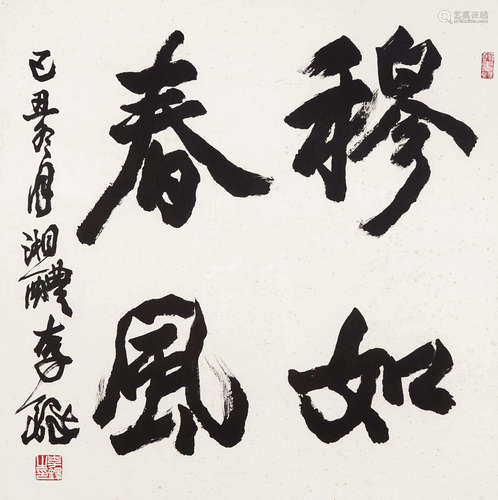 穆如
春風
己丑冬月湘醴李鐸